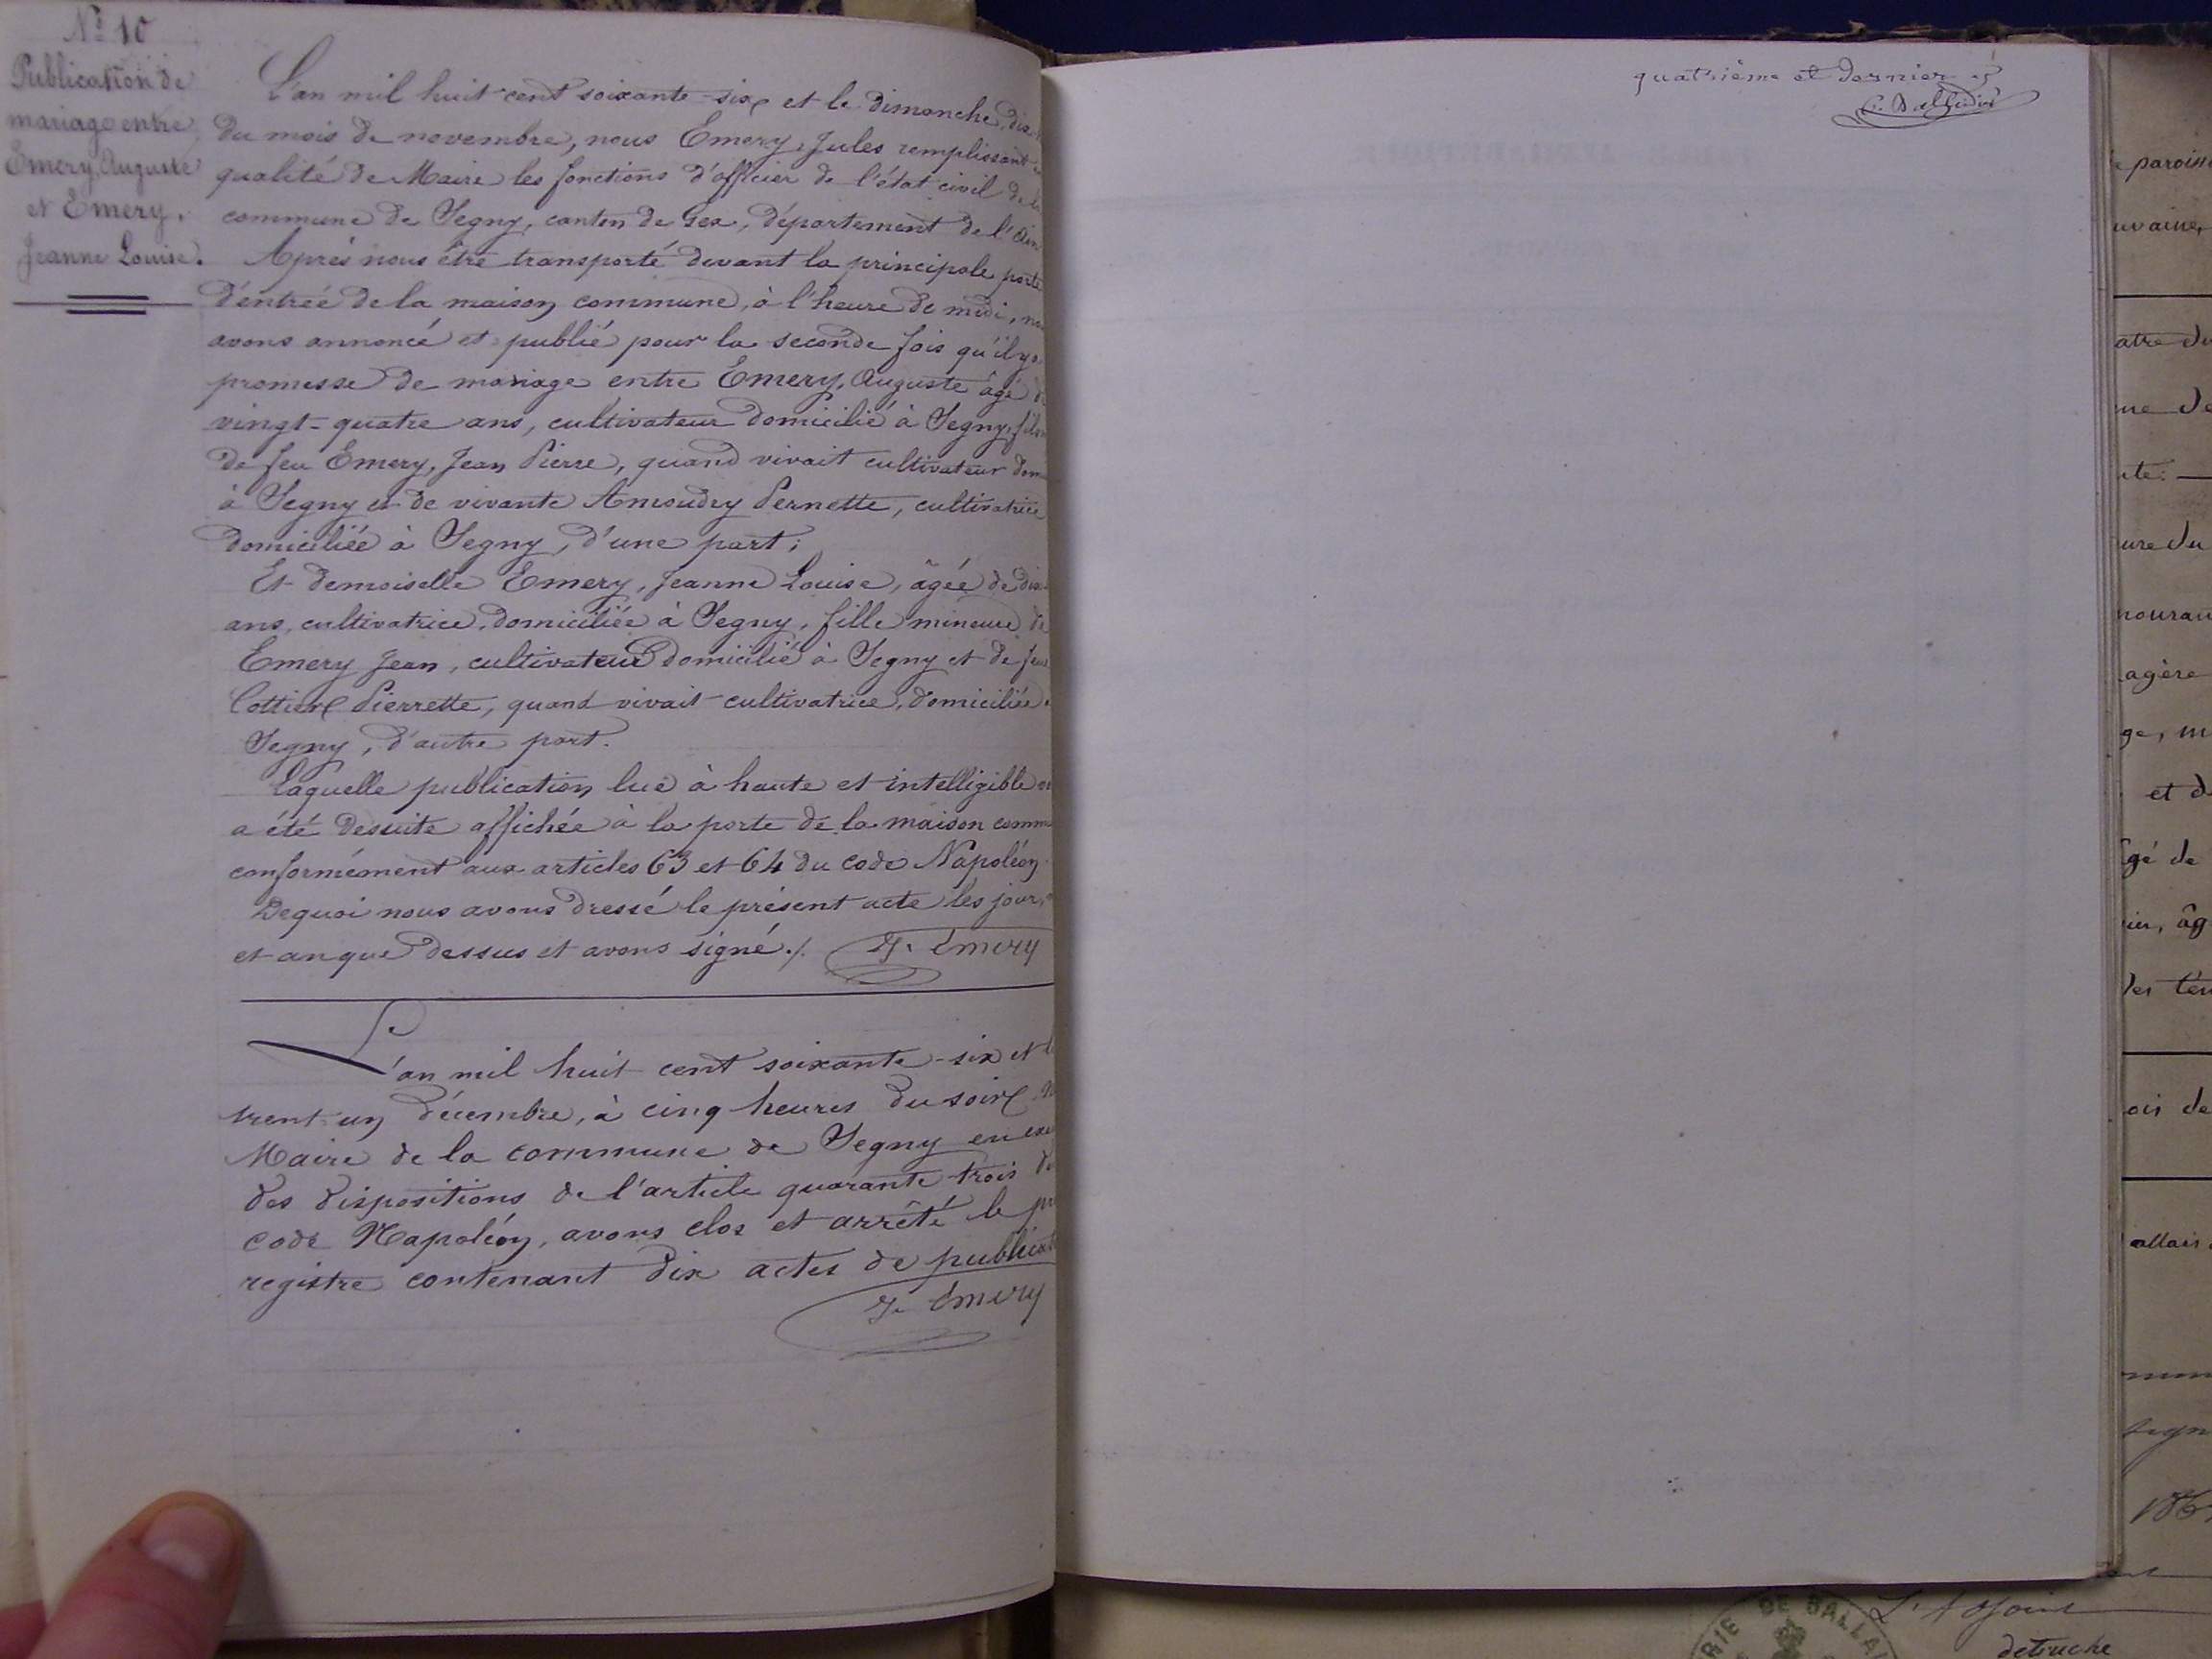 Nº 10
Publication de
mariage entre
Emery, Auguste
et Emery,
Jeanne Louise.
L'an mil huit cent soixante-six et le dimanche, dix
du mois de novembre, nous Emery, Jules remplissant
qualité de Maire les fonctions d'officier de l'état civil de la
commune de Segny, canton de Gex, département de l'Ain
Après nous être transporté devant la principale porte
d'entrée de la maison commune, à l'heure de midi,
avons annoncé et publié pour la seconde fois qu'il y a
promesse de mariage entre Emery, Auguste âgé de
vingt-quatre ans, cultivateur domicilié à Segny, fils
de feu Emery, Jean Pierre, quand vivait cultivateur dom
à Segny et de vivante Amoudry Pernette, cultivatrice
domiciliée à Segny, d'une part;
Et demoiselle Emery, Jeanne Louise, âgée de dix
ans, cultivatrice, domiciliée à Segny, fille mineure de
Emery Jean, cultivateur domicilié à Segny et de feue
Cottier Pierrette, quand vivait cultivatrice, domiciliée
Segny, d'autre part.
Laquelle publication lue à haute et intelligible
a été desuite affichée à la porte de la maison comm
conformément aux articles 63 et 64 du code Napoléon
Dequoi nous avons dressé le présent acte les jour,
et an que dessus et avons signé ./. J. Emery
L'an mil huit cent soixante-six et le
trent-un décembre, à cinq heures du soir
Maire de la commune de Segny en exé
des dispositions de l'article quarante-trois du
code Napoléon, avons clos et arrêté le pr
registre contenant dix actes de publicat
J. Emery
quatrième et dernier
paroiss
atre du
me de
ure du
agère
ge, m
et d
gé de
âg
ois de
allais
L'Adjoint
detruche
RIE DE BALLA